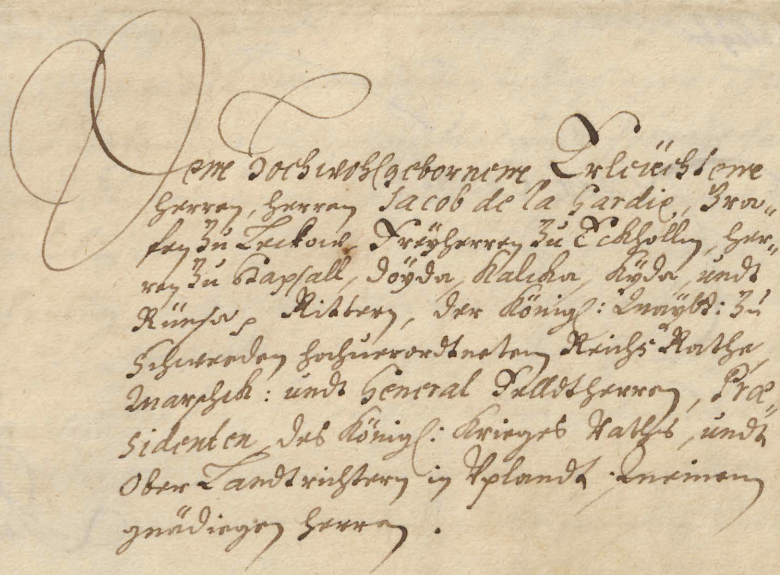 Deme Hochwohlgebornem Erleüchteme
herren, herren Jacob de la Gardie, Gra-
fen zu Leckow, Freÿherren zu Eckhollm, her-
ren zu Hapsall, Döÿda, Kalcka, Kÿda, undt
Rünsa, Rittern, der Königl: Maÿtt: zu
Schweeden hochuerordtneten Reichs Rathe,
Marschk: undt General Felldtherren, Præ-
sidenten des Königl: Krieges Raths, undt
Ober Landtrichtern in Vplandt, Meinem
gnädiegen herren.